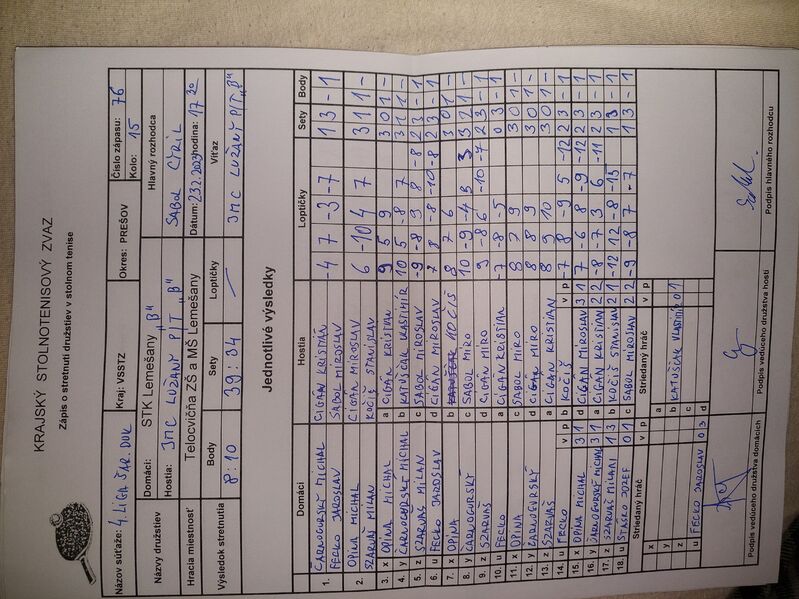 KRAJSKÝ STOLNOTENISOVÝ ZVAZ
Zápis o stretnutí družstiev v stolnom tenise
Názov súťaže: 4. LIGA ŠAR. DUK Kraj: VSSTZ Okres: PREŠOV Číslo zápasu: 76
Kolo: 15
Názvy družstiev Domáci: STK Lemešany "B" Hlavný rozhodca
Hostia: JMC LUŽANY P/T "B" SABOL CYRIL
Hracia miestnosť Telocvičňa ZŠ a MŠ Lemešany Dátum: 23.2.2023 hodina: 17 20
Výsledok stretnutia Body Sety Loptičky Víťaz
8:10 39:34 JMC LUŽANY P/T "B"
Jednotlivé výsledky
Domáci Hostia Loptičky Sety Body
1. ČARNOGURSKÝ MICHAL CIGAN KRISTIÁN -4 7 -3 -7 1 3 - 1
FECKO JAROSLAV SABOL MIROSLAV
2. OPINA MICHAL CIGAN MIROSLAV 6 -10 4 7 3 1 1 -
SZARVAŠ MILAN KOČIŠ STANISLAV
3. x OPINA MICHAL a CIGAN KRISTIAN 9 5 9 3 0 1 -
4. y ČARNOGURSKÝ MICHAL b KATUŠČAK VLASTIMÍR 10 5 -8 7 3 1 1 -
5. z SZARVAŠ MILAN c SABOL MIROSLAV -9 -8 9 8 -8 2 3 - 1
6. u FECKO JAROSLAV d CIGAN MIROSLAV 7 8 -8 -10 -8 2 3 - 1
7. x OPINA b KOČIŠ 8 7 6 3 0 1 -
8. y ČARNOGURSKÝ c SABOL MIRO 10 -9 -4 3 3 3 2 1 -
9. z SZARVAŠ d CIGAN MIRO 9 -8 6 -10 -7 2 3 - 1
10. u FECKO a CIGAN KRISTIAN -7 -8 -5 0 3 - 1
11. x OPINA c SABOL MIRO 8 7 9 3 0 1 -
12. y ČARNOGURSKÝ d CIGAN MIRO 8 8 9 3 0 1 -
13. z SZARVAŠ a CIGAN KRISTIAN 8 9 10 3 0 1 -
14. u FECKO v p b KOČIŠ v p -7 -8 -9 5 -12 2 3 - 1
15. x OPINA MICHAL 3 1 d CIGAN MIROSLAV 3 1 7 -6 8 -9 -12 2 3 - 1
16. y ČARNOGURSKÝ MICHAL 3 1 a CIGAN KRISTIAN 2 2 -8 -7 3 6 -11 2 3 - 1
17. z SZARVAŠ MILAN 1 3 b KOČIŠ STANISLAV 2 1 -12 12 -8 -15 1 3 - 1
18. u STAŠKO JOZEF 0 1 c SABOL MIROSLAV 2 2 -9 -8 7 -7 1 3 - 1
Striedaný hráč v p Striedaný hráč v p
x a
y b KATUŠČAK VLASTIMÍR 0 1
z c
u FECKO JAROSLAV 0 3 d
Podpis vedúceho družstva domácich Podpis vedúceho družstva hostí Podpis hlavného rozhodcu